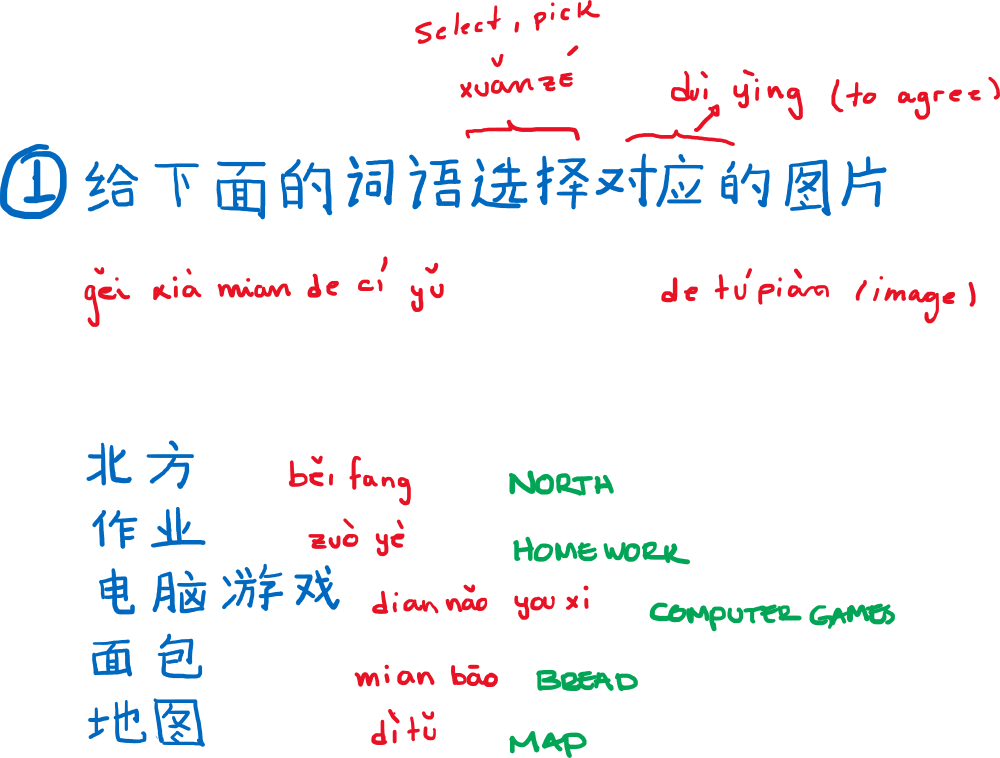 select, pick
xuǎn zé duì yìng (to agree)
① 给下面的词语选择对应的图片
gěi xià mian de cí yǔ de tú piàn (image)
北方 běi fang NORTH
作业 zuò yè HOMEWORK
电脑游戏 dian nǎo you xi COMPUTER GAMES
面包 mian bāo BREAD
地图 dì tǔ MAP